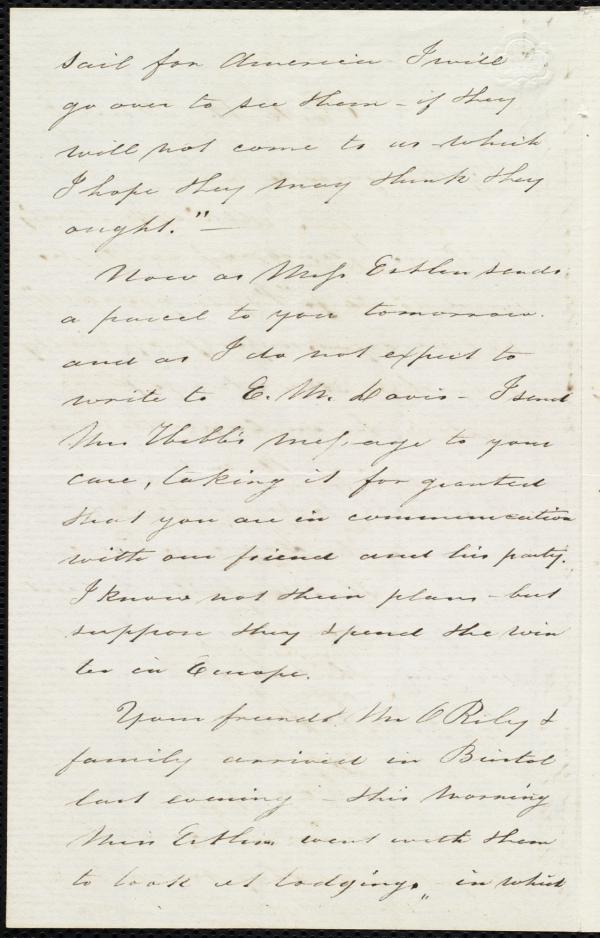 sail for America I will
go over to see them - if they
will not come to us - which
I hope they may think they
ought." —
Now as Miss Estlin sends
a parcel to you tomorrow.
and as I do not expect to
write to E. M. Davis - I send
Mrs Webb's message to your
care, taking it for granted
that you are in communication
with our friend and his party.
I know not their plans - but
suppose they spend the win
ter in Europe.
Your friends Mr O Riley &
family arrived in Bristol
last evening - this morning
Miss Estlin went with them
to look at lodgings, in which